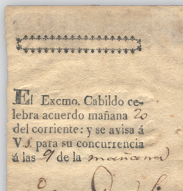 El Excmo. Cabildo ce-
lebra acuerdo mañana 20
del corriente: y se avisa á
V.S. para su concurrencia
á las 9 de la mañana